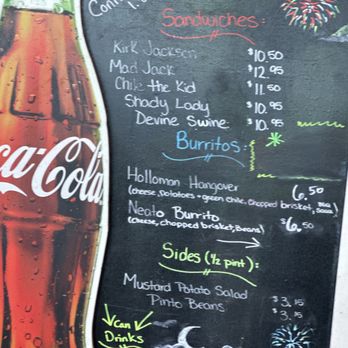 Sandwiches:
Kirk Jackson $10.50
Mad Jack $12.95
Chile the Kid $11.50
Shady Lady $10.95
Devine Swine $10.95
Burritos:
Holloman Hangover 6.50
(cheese, potatoes + green chile, chopped brisket, BBQ Sauce)
Neato Burrito $6.50
(cheese, chopped brisket, Beans)
Sides (1/2 pint):
Mustard Potato Salad $3.15
Pinto Beans $3.15
Can
Drinks
ca-Cola